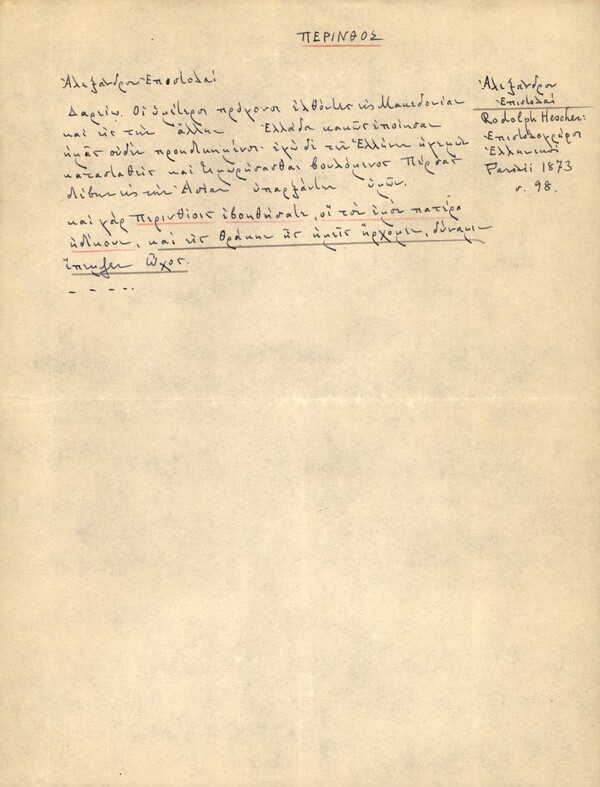 ΠΕΡΙΝΘΟΣ
Ἀλεξάνδρου Ἐπιστολαί
Δαρείῳ. Οἱ ὑμέτεροι πρόγονοι ἐλθόντες εἰς Μακεδονίαν
καὶ εἰς τὴν ἄλλην Ἑλλάδα κακῶς ἐποίησαν
ἡμᾶς οὐδὲν προηδικημένοι· ἐγὼ δὲ τῶν Ἑλλήνων ἡγεμὼν
κατασταθεὶς καὶ τιμωρήσασθαι βουλόμενος Πέρσας
διέβην εἰς τὴν Ἀσίαν ὑπαρξάντων ὑμῶν.
καὶ γὰρ Περινθίοις ἐβοηθήσατε, οἳ τὸν ἐμὸν πατέρα
ἠδίκουν, καὶ εἰς Θράκην ἧς ἡμεῖς ἤρχομεν, δύναμιν
ἔπεμψεν Ὦχος.
– – – – .
Ἀλεξάνδρου
Ἐπιστολαί
Rodolph Hescher:
Ἐπιστολογράφοι
Ἑλληνικοὶ
Parisii 1873
σ. 98.